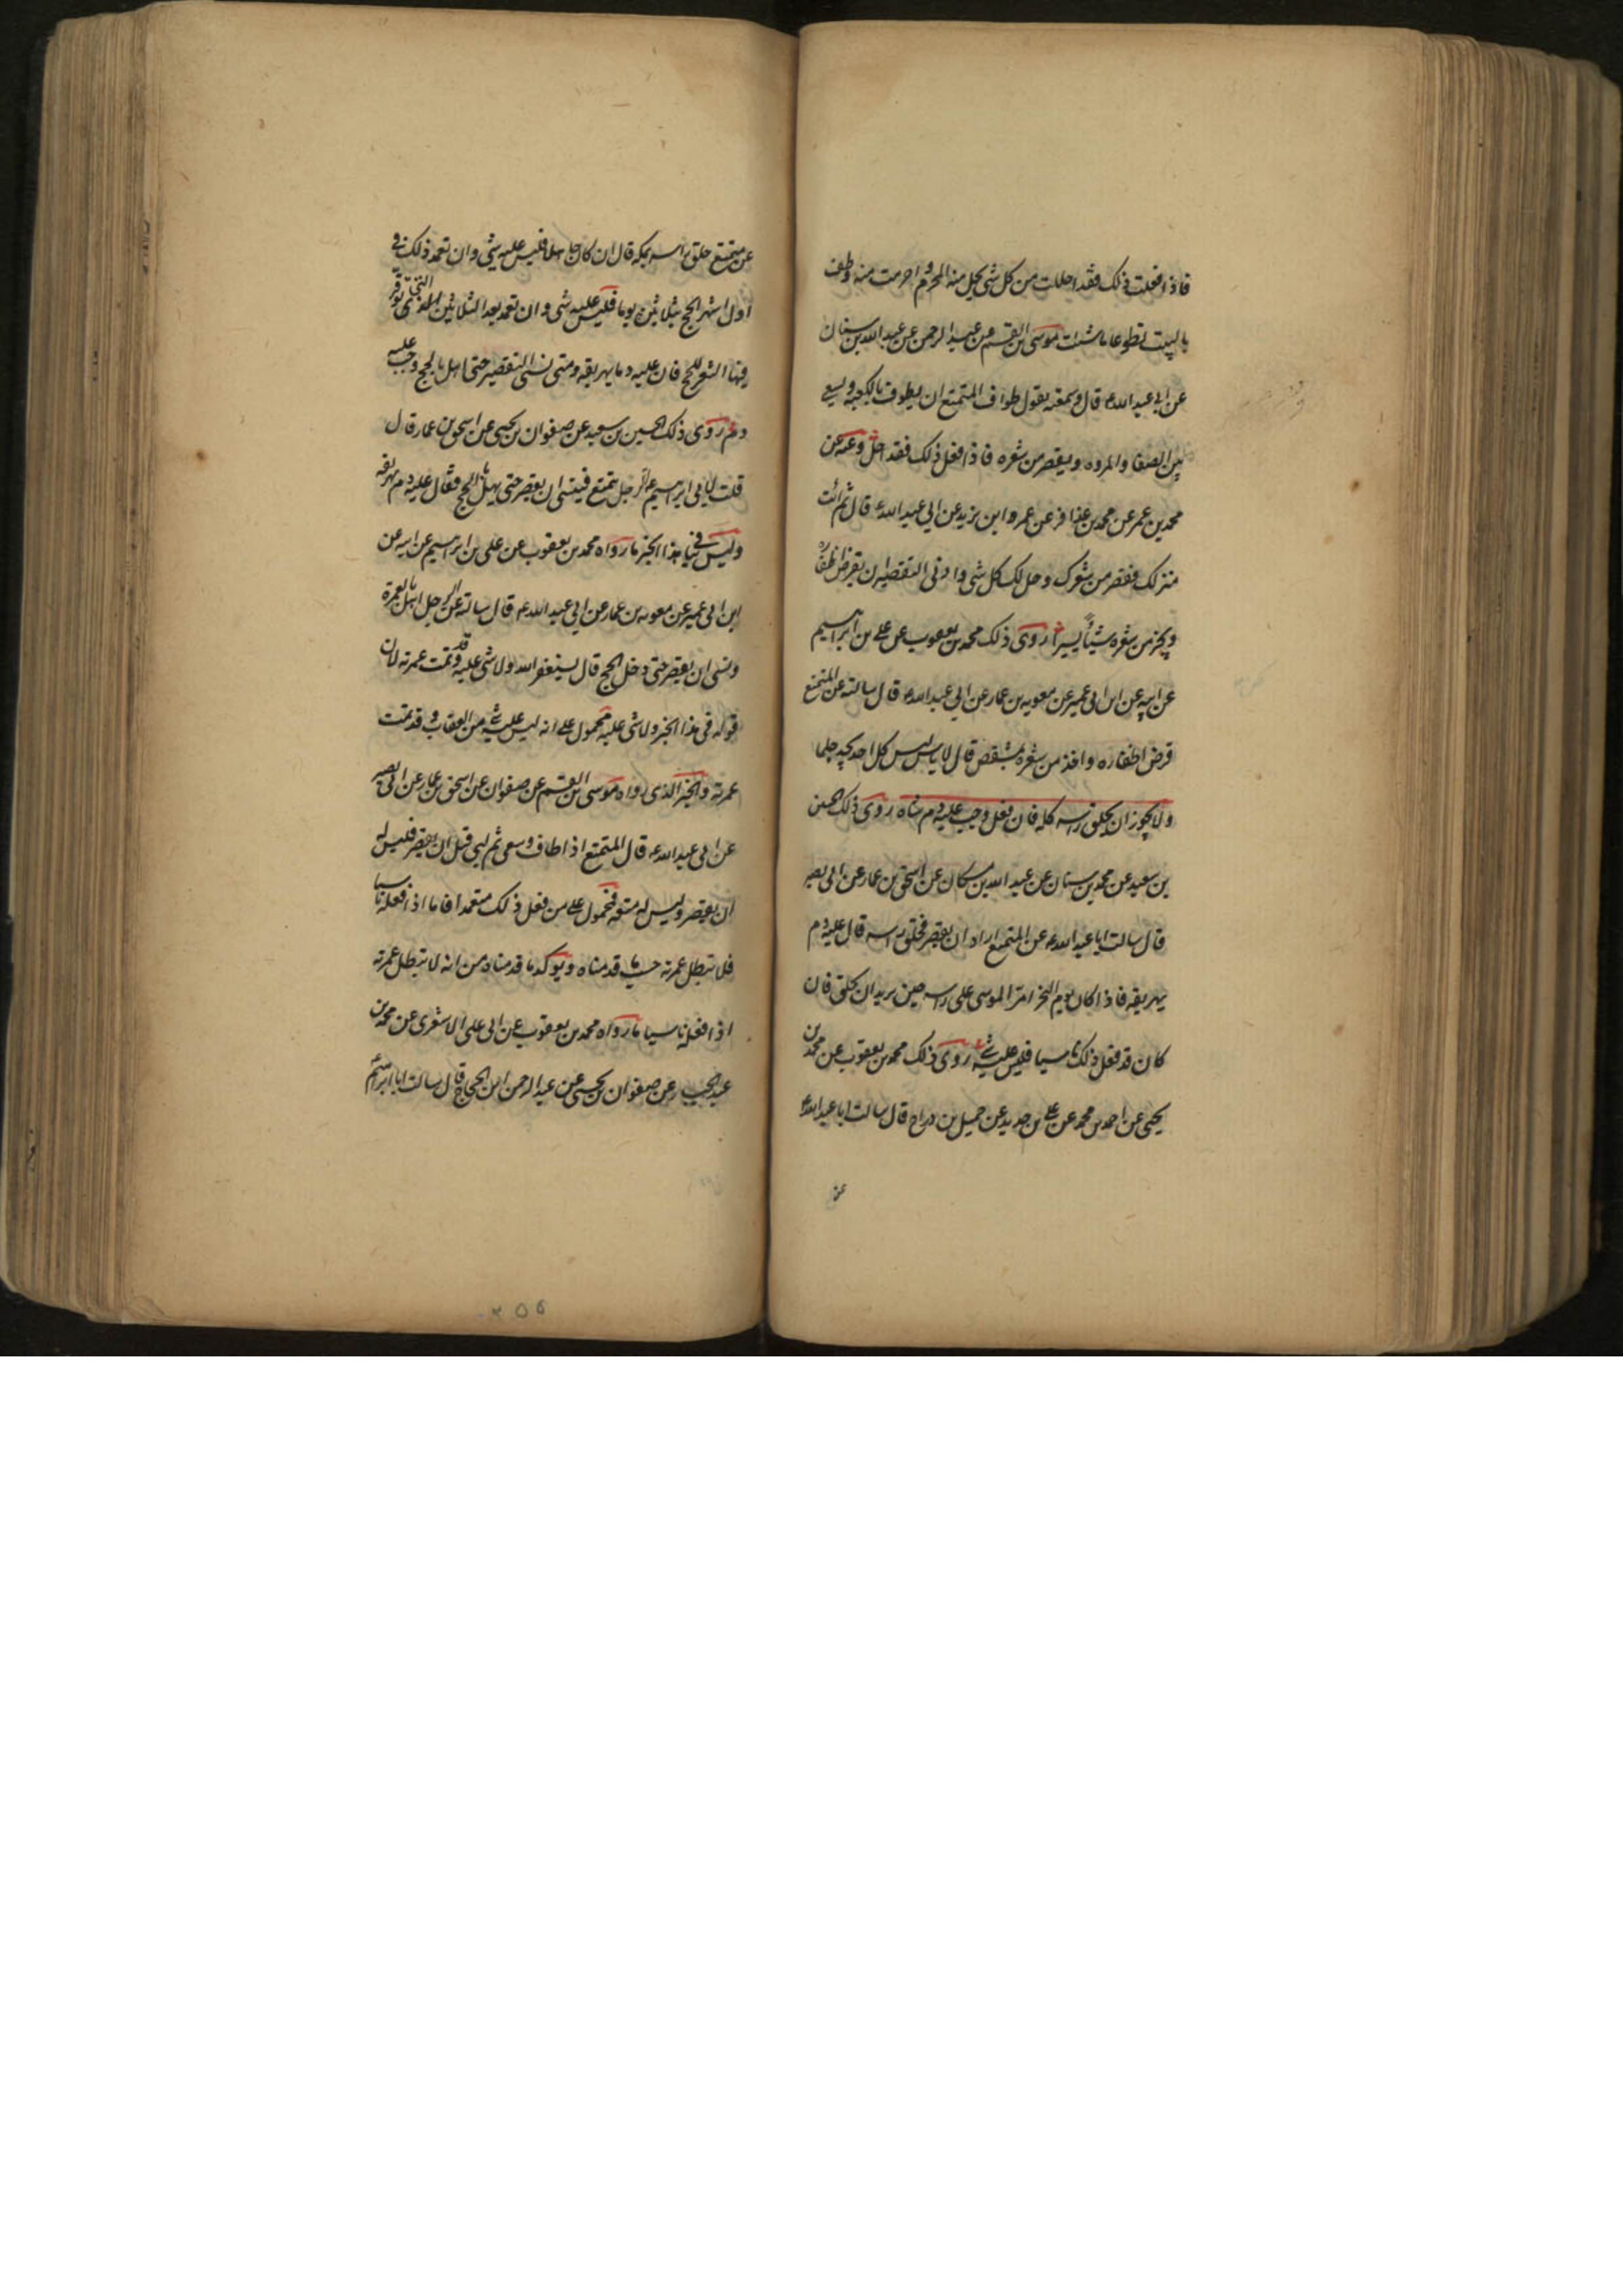 فاذا فعلت ذلك فقد احللت من كل شى يحل منه المحرم و احرمت منه وطف
بالبيت تطوعا ما شئت موسى بن القسم عن عبد الرحمن عن عبد الله بن سنان
عن ابى عبد الله ع قال وسمعته يقول طواف المتمتع ان يطوف بالكعبه ويسعى
بين الصفا والمروه ويقصر من شعره فاذا فعل ذلك فقد احل وعنه عن
محمد بن عمر عن محمد بن عذافر عن عمر وابن يزيد عن ابى عبد الله ع قال ثم ائت
منزلك فقصر من شعرك وحل لك كل شى وادنى التقصير ان يقرض اظفاره
ويجز من شعره شيئا يسيرا روى ذلك محمد بن يعقوب عن على بن ابراهيم
عن ابيه عن ابن ابى عمير عن معويه بن عمار عن ابى عبد الله ع قال سالته عن المتمتع
قرض اظفاره واخذ من شعره بمشقص قال لا باس ليس كل احد يجد جلما
ولا يجوز ان يحلق راسه كله فان فعل وجب عليه دم شاه روى ذلك الحسين
بن سعيد عن محمد بن سنان عن عبد الله بن مسكان عن اسحق بن عمار عن ابى بصير
قال سالت ابا عبد الله ع عن المتمتع اراد ان يقصر فحلق راسه قال عليه دم
يهريقه فاذا كان يوم النحر امر الموسى على راسه حين يريد ان يحلق فان
كان قد فعل ذلك ناسيا فليس عليه شى روى ذلك محمد بن يعقوب عن محمد بن
يحيى عن احمد بن محمد عن على بن حديد عن جميل بن دراج قال سالت ابا عبد الله ع
عن
عن متمتع حلق راسه بمكه قال ان كان جاهلا فليس عليه شى وان تعمد ذلك فى
اول اشهر الحج بثلاثين يوما فليس عليه شى وان تعمد بعد الثلاثين التى يوفر
فيها الشعر للحج فان عليه دما يهريقه ومتى نسى التقصير حتى اهل بالحج وجب عليه
دم روى ذلك الحسين بن سعيد عن صفوان بن يحيى عن اسحق بن عمار قال
قلت لابى ابراهيم ع الرجل يتمتع فينسى ان يقصر حتى يهل بالحج فقال عليه دم يهريقه
وليس ينافى هذا الخبر ما رواه محمد بن يعقوب عن على بن ابراهيم عن ابيه عن
ابن ابى عمير عن معويه بن عمار عن ابى عبد الله ع قال سالته عن الرجل اهل بالعمرة
ونسى ان يقصر حتى دخل الحج قال يستغفر الله ولا شى عليه وقد تمت عمرته لان
قوله فى هذا الخبر ولا شى عليه محمول على انه ليس عليه شى من العقاب وقد تمت
عمرته والخبر الذى رواه موسى بن القسم عن صفوان عن اسحق بن عمار عن ابى بصير
عن ابى عبد الله ع قال المتمتع اذا طاف وسعى ثم لبى قبل ان يقصر فليس له
ان يقصر وليس له متعه فمحمول على من فعل ذلك متعمدا فاما اذا فعله ناسيا
فلا تبطل عمرته حسب ما قدمناه ويوكد ما قدمناه من انه لا تبطل عمرته
اذا فعله ناسيا ما رواه محمد بن يعقوب عن ابى على الاشعرى عن محمد بن
عبد الجبار عن صفوان بن يحيى عن عبد الرحمن ابن الحجاج قال سالت ابا ابراهيم ع